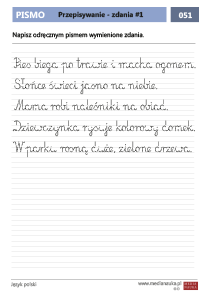 PISMO Przepisywanie - zdania #1 051
Napisz odręcznym pismem wymienione zdania.
Pies biega po trawie i macha ogonem.
Słońce świeci jasno na niebie.
Mama robi naleśniki na obiad.
Dziewczynka rysuje kolorowy domek.
W parku rosną duże, zielone drzewa.
Język polski www.medianauka.pl